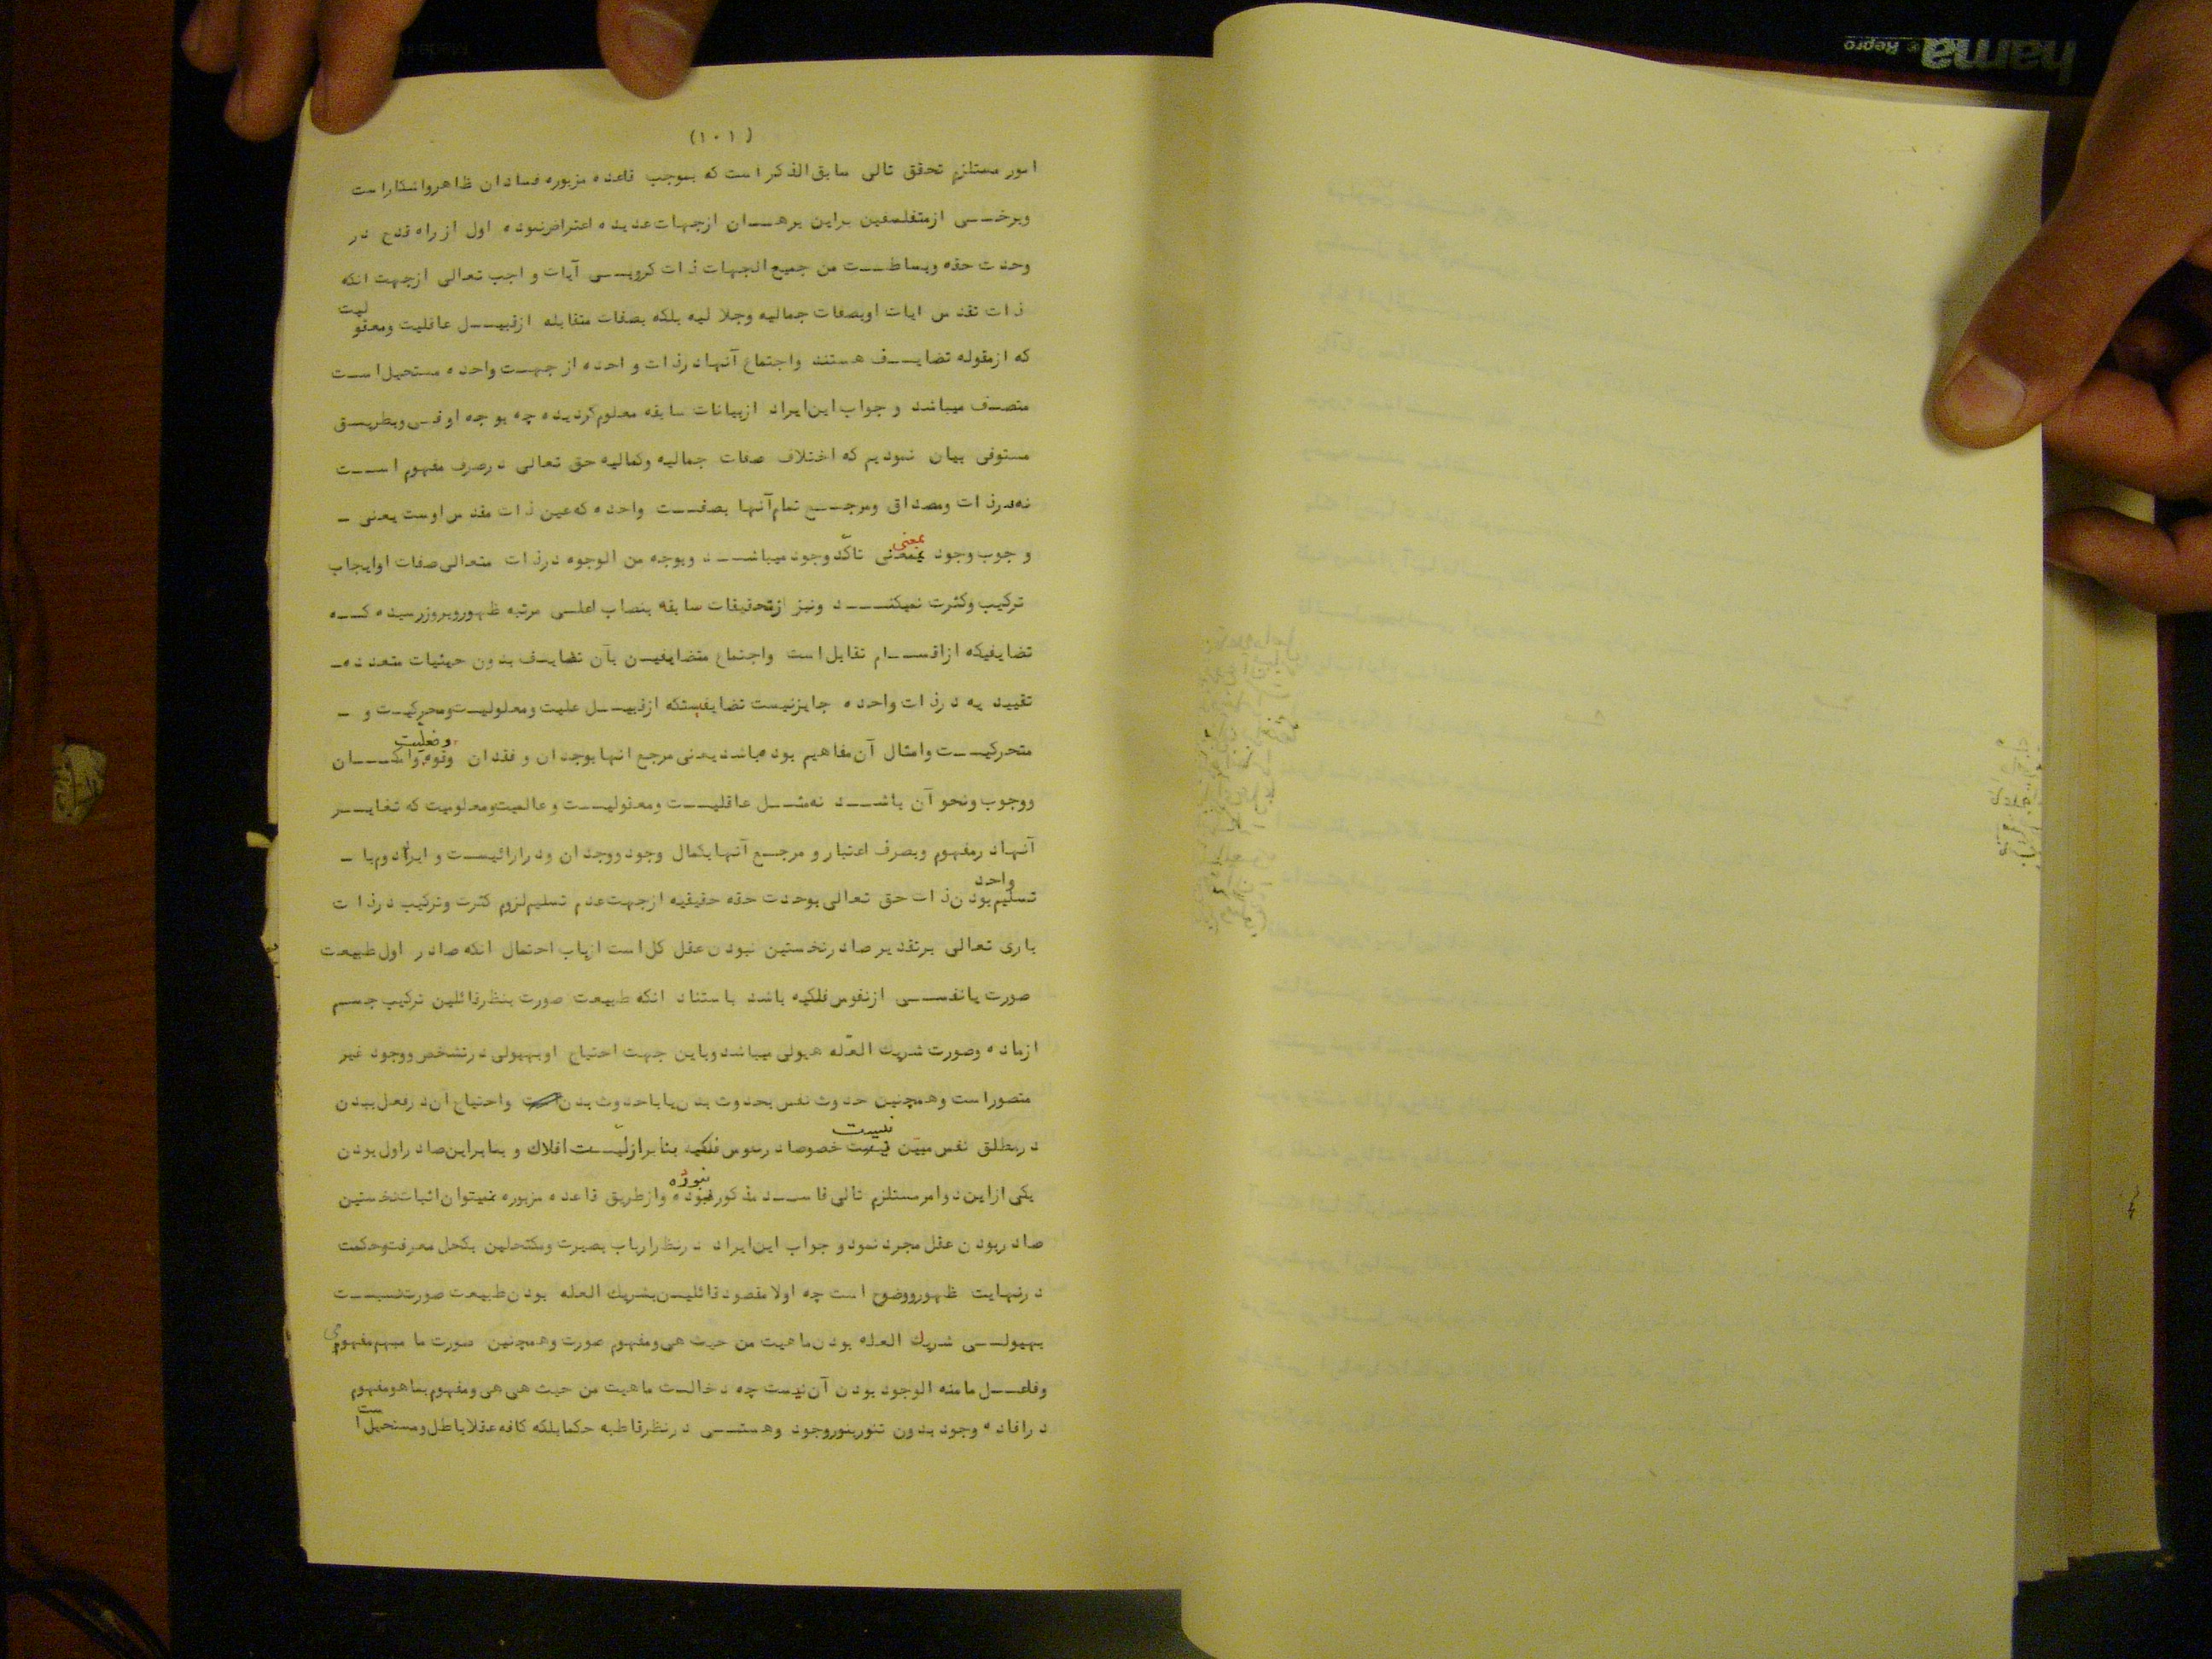 (۱۰۱)
امور مستلزم تحقق تالی سابق الذکر است که بموجب قاعده مزبوره فسادان ظاهرواشکاراست
وبرخی ازمتفلسفین براین برهان ازجهات عدیده اعتراض نموده اول از راه قدح در
وحدت حقه وبساطت من جمیع الجهات ذات کروبی آیات واجب تعالی ازجهت انکه
ذات تقدس ایات اوبصفات جمالیه وجلالیه بلکه بصفات متقابله ازقبیل عاقلیت ومعقولیت
که ازمقوله تضایف هستند واجتماع آنهادرذات واحده از جهت واحده مستحیل است
متصف میباشد و جواب این ایراد ازبیانات سابقه معلوم گردیده چه بوجه اوفی وبطریق
مستوفی بیان نمودیم که اختلاف صفات جمالیه وکمالیه حق تعالی درصرف مفهوم است
نه درذات ومصداق ومرجع تمام آنها بصفت واحده که عین ذات مقدس اوست یعنی -
وجوب وجود بمعنی تاکّد وجود میباشد وبوجه من الوجوه درذات متعالی صفات اوایجاب
ترکیب وکثرت نمیکند ونیز ازتحقیقات سابقه بنصاب اعلی مرتبه ظهوروبروزرسیده که
تضایفیکه ازاقسام تقابل است واجتماع متضایفین بآن تضایف بدون حیثیات متعدده -
تقییدیه درذات واحده جایزنیست تضایفیستکه ازقبیل علیت ومعلولیت ومحرکیت و -
متحرکیت وامثال آن مفاهیم بوده باشد یعنی مرجع انها بوجدان و فقدان وقوه وفعلیت وامکان
ووجوب ونحو آن باشد نه مثل عاقلیت ومعقولیت وعالمیت ومعلومیت که تغایر
آنهادرمفهوم وبصرف اعتبار و مرجع آنها بکمال وجود ووجدان ودارائیست و ایراد دوم با -
تسلیم بودن ذات حق تعالی واحد بوحدت حقه حقیقیه ازجهت عدم تسلیم لزوم کثرت وترکیب درذات
باری تعالی برتقدیر صادرنخستین نبودن عقل کل است ازباب احتمال انکه صادر اول طبیعت
صورت یانفسی ازنفوس فلکیه باشد باستناد انکه طبیعت صورت بنظرقائلین ترکیب جسم
ازماده وصورت شریك العلّه هیولی میباشد وباین جهت احتیاج اوبهیولی درتشخص ووجود غیر
متصوراست وهمچنین حدوث نفس بحدوث بدن یاباحدوث بدن واحتیاج ان درفعل ببدن
درمطلق نفس مبیّن نیست خصوصا درنفوس فلکیه بنابرازلیّت افلاك و بنابراین صادراول بودن
یکی ازاین دوامرمستلزم تالی فاسد مذکور نبوده وازطریق قاعده مزبوره نمیتوان اثبات نخستین
صادربودن عقل مجرد نمود و جواب این ایراد درنظرارباب بصیرت ومکتحلین بکحل معرفت وحکمت
درنهایت ظهورووضوح است چه اولا مقصود قائلین بشریك العله بودن طبیعت صورت نسبت
بهیولی شریك العله بودن ماهیت من حیث هی ومفهوم صورت وهمچنین صورت ما مبهم مفهومی
وفاعل مامنه الوجود بودن آن نیست چه دخالت ماهیت من حیث هی هی ومفهوم بماهومفهوم
درافاده وجود بدون تنوربنوروجود وهستی درنظرقاطبه حکما بلکه کافه عقلا باطل ومستحیل است
hama
Repro